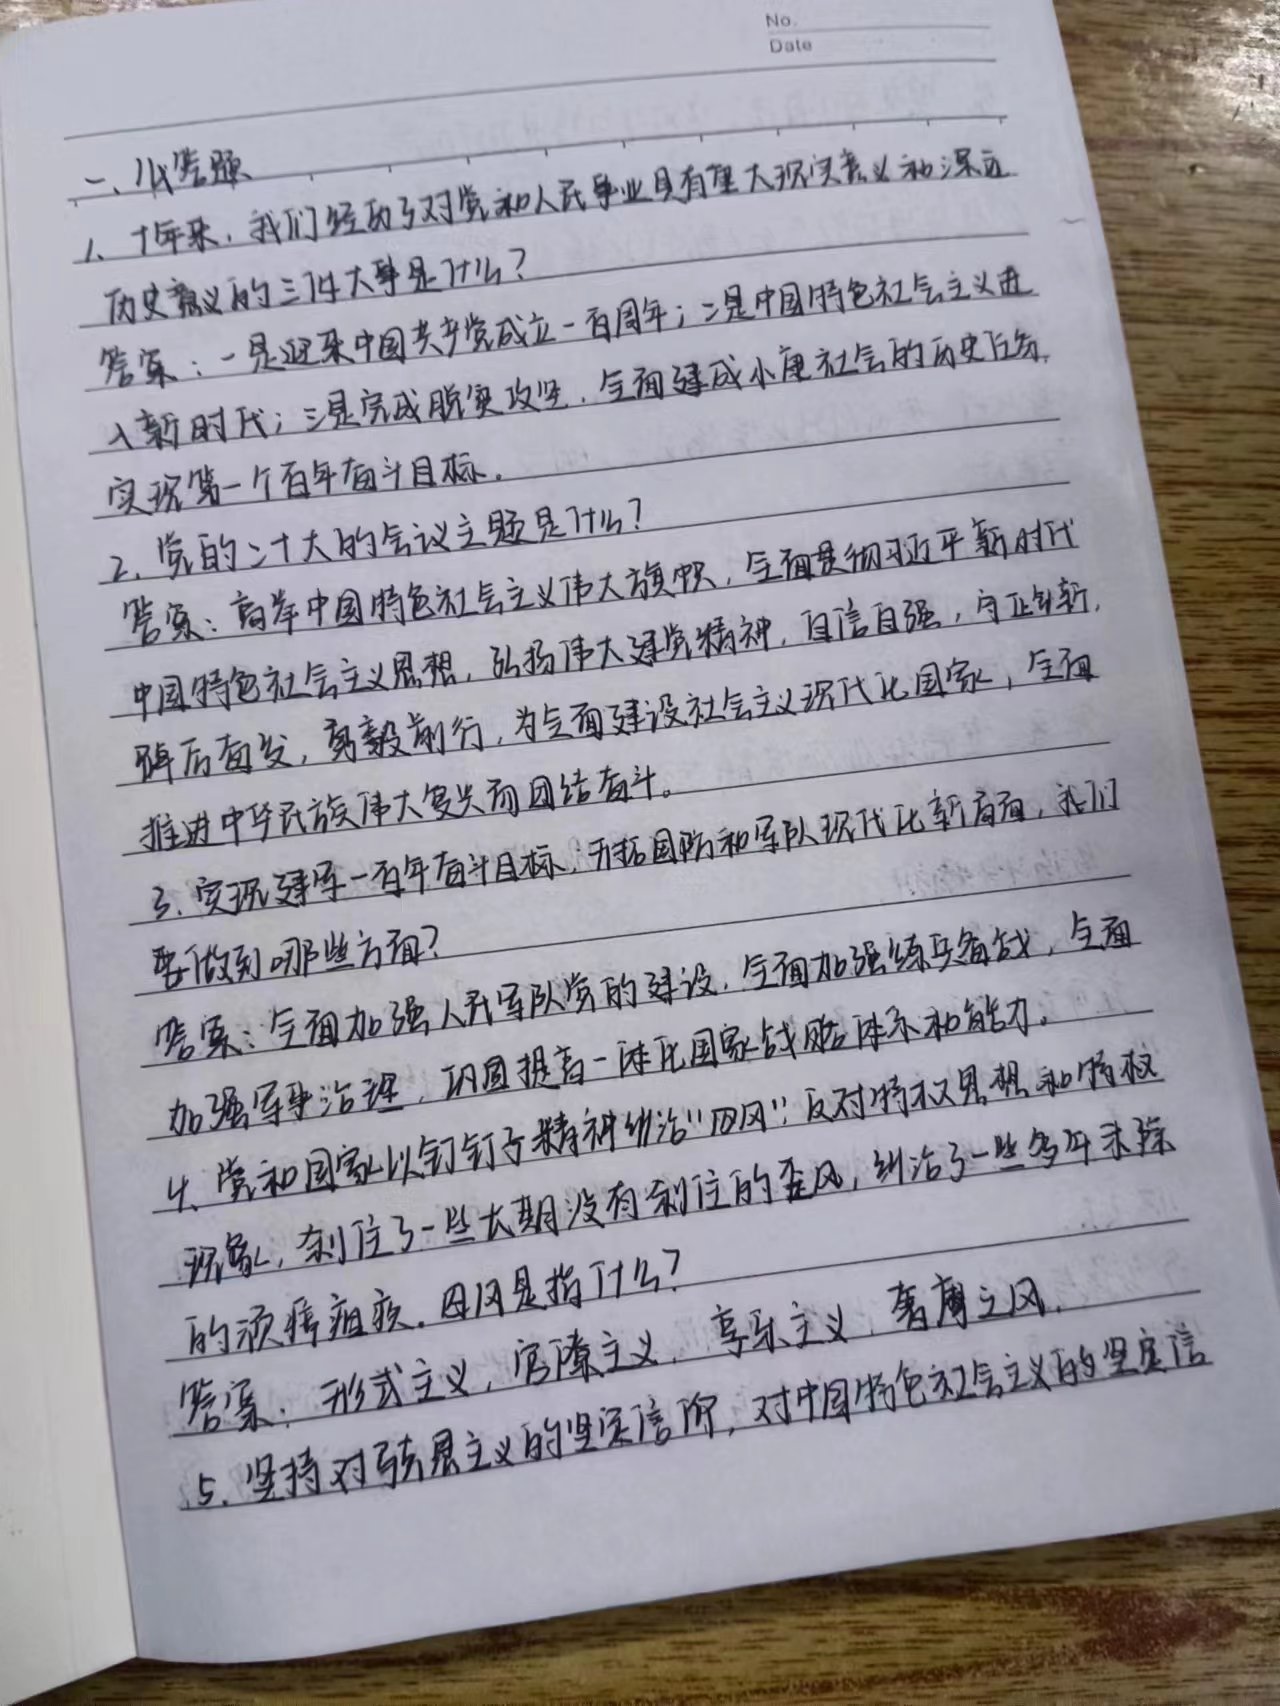 No.
Date
一、必答题
1、十年来，我们经历了对党和人民事业具有重大现实意义和深远
历史意义的三件大事是什么？
答案：一是迎来中国共产党成立一百周年；二是中国特色社会主义进
入新时代；三是完成脱贫攻坚、全面建成小康社会的历史任务，
实现第一个百年奋斗目标。
2、党的二十大的会议主题是什么？
答案：高举中国特色社会主义伟大旗帜，全面贯彻习近平新时代
中国特色社会主义思想，弘扬伟大建党精神，自信自强，守正创新，
踔厉奋发，勇毅前行，为全面建设社会主义现代化国家，全面
推进中华民族伟大复兴而团结奋斗。
3、实现建军一百年奋斗目标，开拓国防和军队现代化新局面，我们
要做到哪些方面？
答案：全面加强人民军队党的建设，全面加强练兵备战，全面
加强军事治理，巩固提高一体化国家战略体系和能力。
4、党和国家以钉钉子精神纠治“四风”，反对特权思想和特权
现象，刹住了一些长期没有刹住的歪风，纠治了一些多年未除
的顽瘴痼疾。四风是指什么？
答案：形式主义，官僚主义，享乐主义，奢靡之风。
5、坚持对马克思主义的坚定信仰，对中国特色社会主义的坚定信